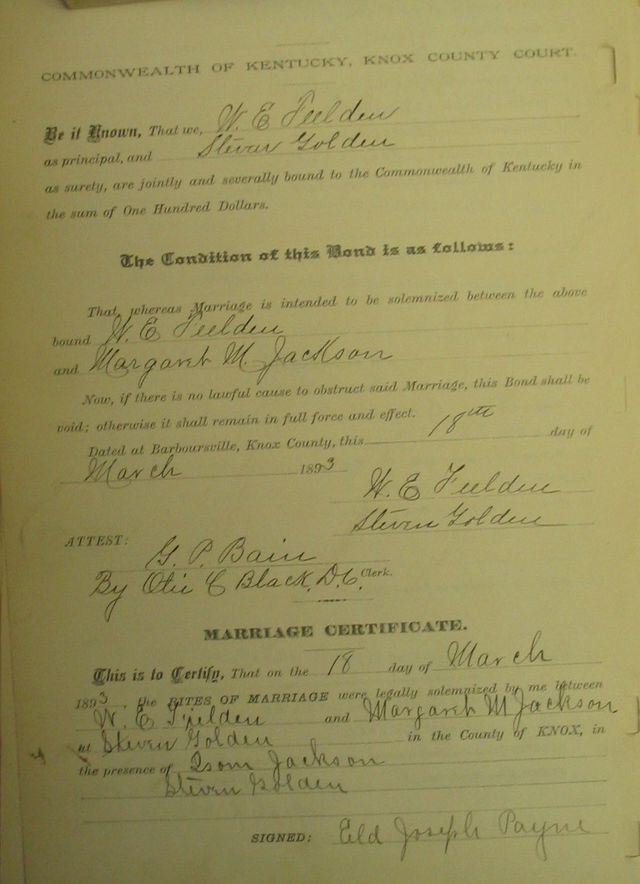 COMMONWEALTH OF KENTUCKY, KNOX COUNTY COURT.
Be it Known, That we, W. E Feelden
as principal, and Steven Golden
as surety, are jointly and severally bound to the Commonwealth of Kentucky in
the sum of One Hundred Dollars.
The Condition of this Bond is as follows:
That whereas Marriage is intended to be solemnized between the above
bound W. E Feelden
and Margaret M. Jackson
Now, if there is no lawful cause to obstruct said Marriage, this Bond shall be
void; otherwise it shall remain in full force and effect.
Dated at Barboursville, Knox County, this 18th day of
March 1893
W. E Feelden
Steven Golden
ATTEST:
G. P. Bain
By Otis C Black, D.C. Clerk.
MARRIAGE CERTIFICATE.
This is to Certify, That on the 18 day of March
1893, the RITES OF MARRIAGE were legally solemnized by me between
W. E Fielden and Margaret M Jackson
at Steven Golden in the County of KNOX, in
the presence of Isom Jackson
Steven Golden
SIGNED: Eld Joseph Payne